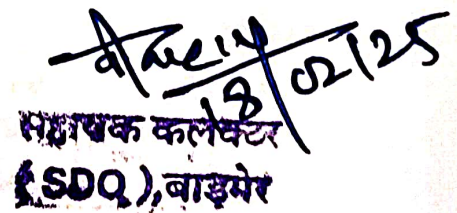 18/02/25
सहायक कलेक्टर
(SDO), बाड़मेर